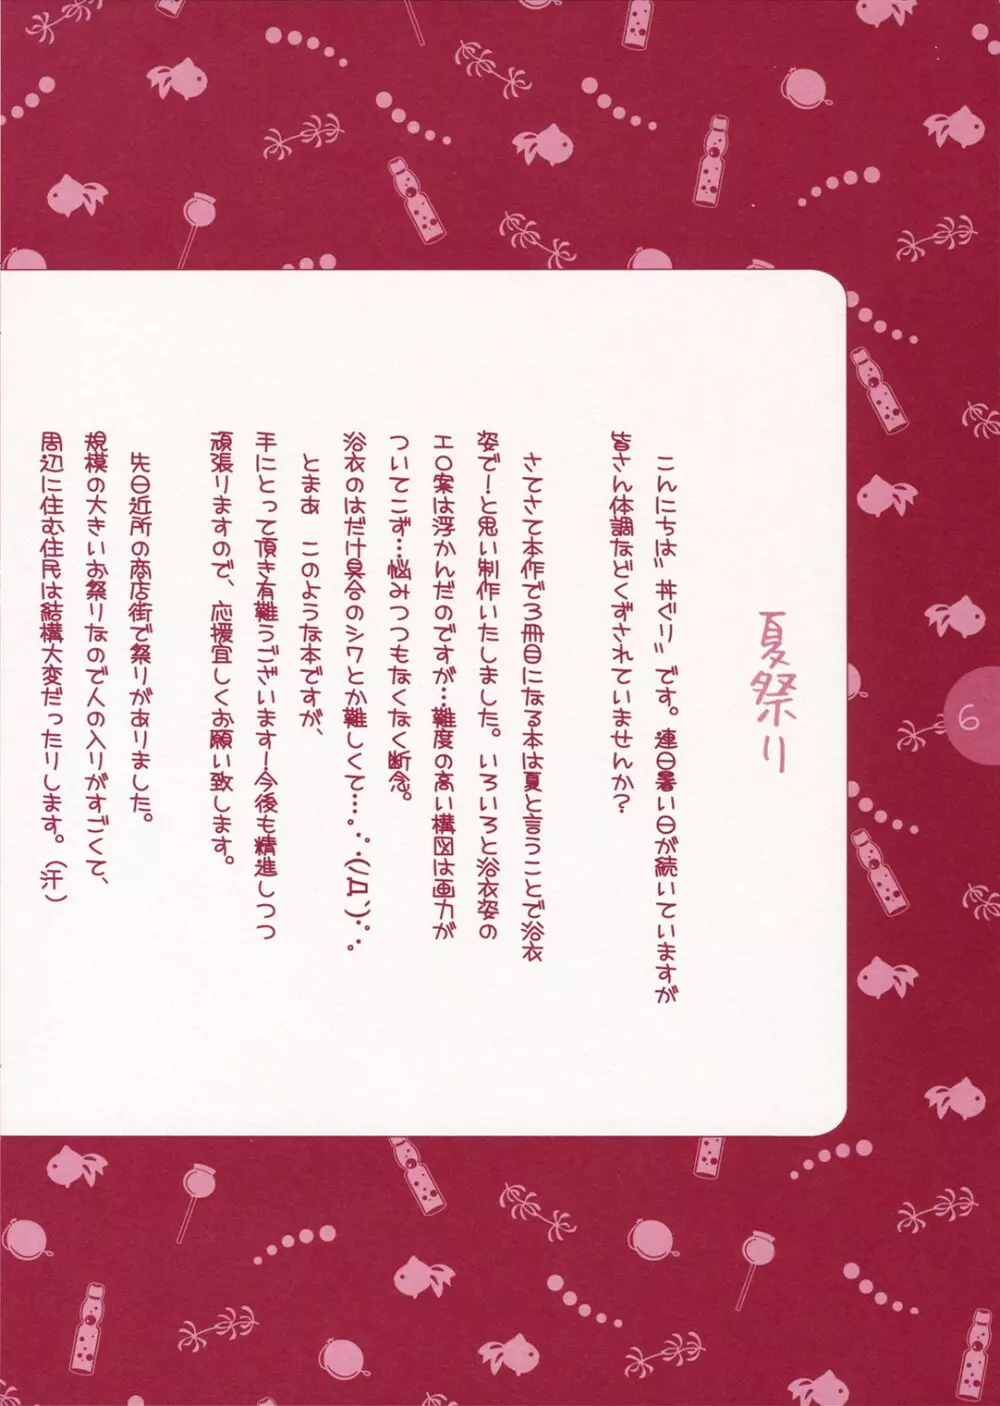 夏祭り
こんにちは〃井ぐり〃です。連日暑い日が続いていますが
皆さん体調などくずされていませんか？
さてさて本作で3冊目になる本は夏と言うことで浴衣
姿で！と思い制作いたしました。いろいろと浴衣姿の
エロ案は浮かんだのですが…難度の高い構図は画力が
ついてこず…悩みつつもなくなく断念。
浴衣のはだけ具合のシワとか難しくて…。゜・(ノД`)・゜・。
とまあ　このような本ですが、
手にとって頂き有難うございます！今後も精進しつつ
頑張りますので、応援宜しくお願い致します。
先日近所の商店街で祭りがありました。
規模の大きいお祭りなので人の入りがすごくて、
周辺に住む住民は結構大変だったりします。（汗）
6